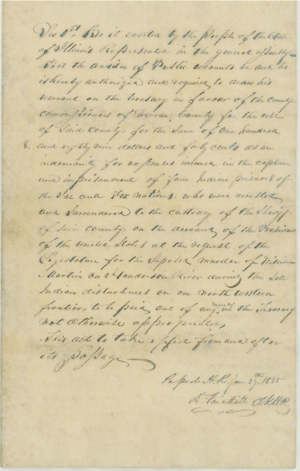 Sec 1st Be it enacted by the People of the State
of Illinois Represented in the general Assembly
That the Auditor of Public accounts be and he
is hereby authorized and required to draw his
warrant on the treasury in favour of the county
commissioners of Warren County for the use
of Said county for the Sum of one hundred
and eighty nine dollars and forty cents as an
indemnity for expenses incured in the capture
and imprisonment of four Indian prisoners of
the Sac and Fox Nations, who were
and Surrendered to the custody of the Sheriff
of Said county on the demand of the President
of the united States at the request of the
Executive for the Supposed murder of William
Martin on Henderson River during the late
Indian disturbances on our North western
frontier, to be paid out of any money in the Treasury
not Otherwise appropriated,
This act to take effect from and after
its passage
Passed H.R. Jan 27th 1835
D. Prickett C.H.R.